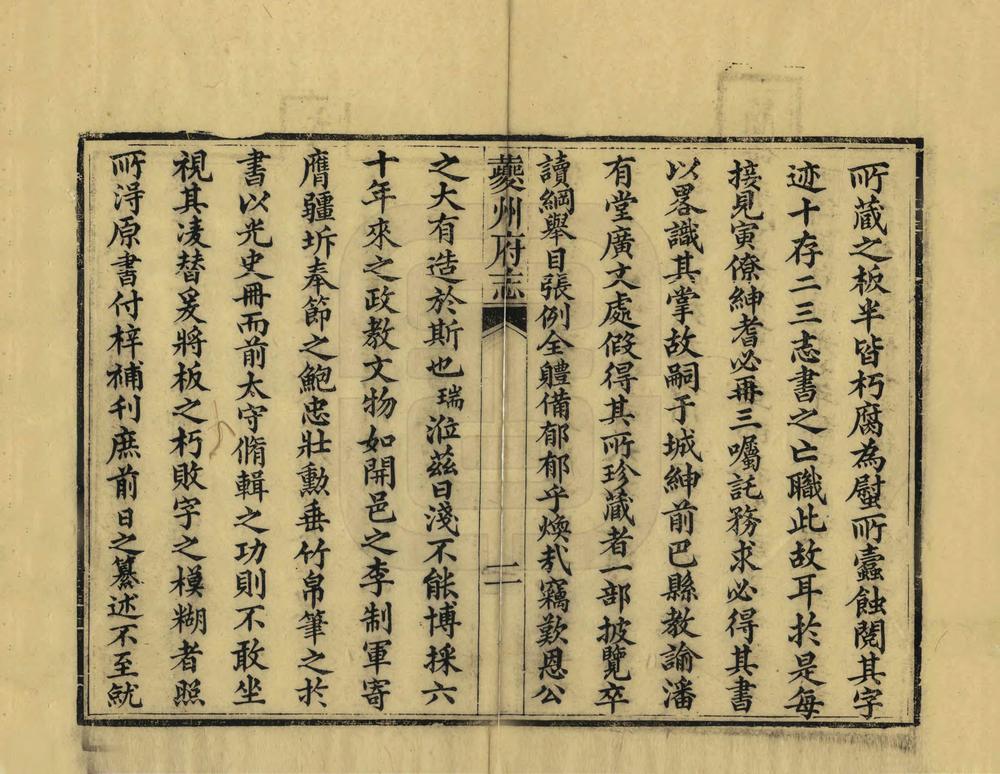 所蔵之板半皆朽腐為屭所蠹蝕閱其字
迹十存二三志書之亡職此故耳扵是每
接見寅僚紳耆必再三囑託務求必得其書
以畧識其掌故嗣于城紳前巴縣教諭潘
有堂廣文處假得其所珍蔵者一部披覽卒
讀綱舉目張例全體備郁郁乎煥㢤竊歎恩公
夔州府志
二
之大有造於斯也瑞涖茲日淺不能博採六
十年來之政教文物如開邑之李制軍寄
膺疆圻奉節之鮑忠壯勳垂竹帛筆之於
書以光史冊而前太守脩輯之功則不敢坐
視其凌替爰將板之朽敗字之模糊者照
所淂原書付梓補刊庶前日之纂述不至就